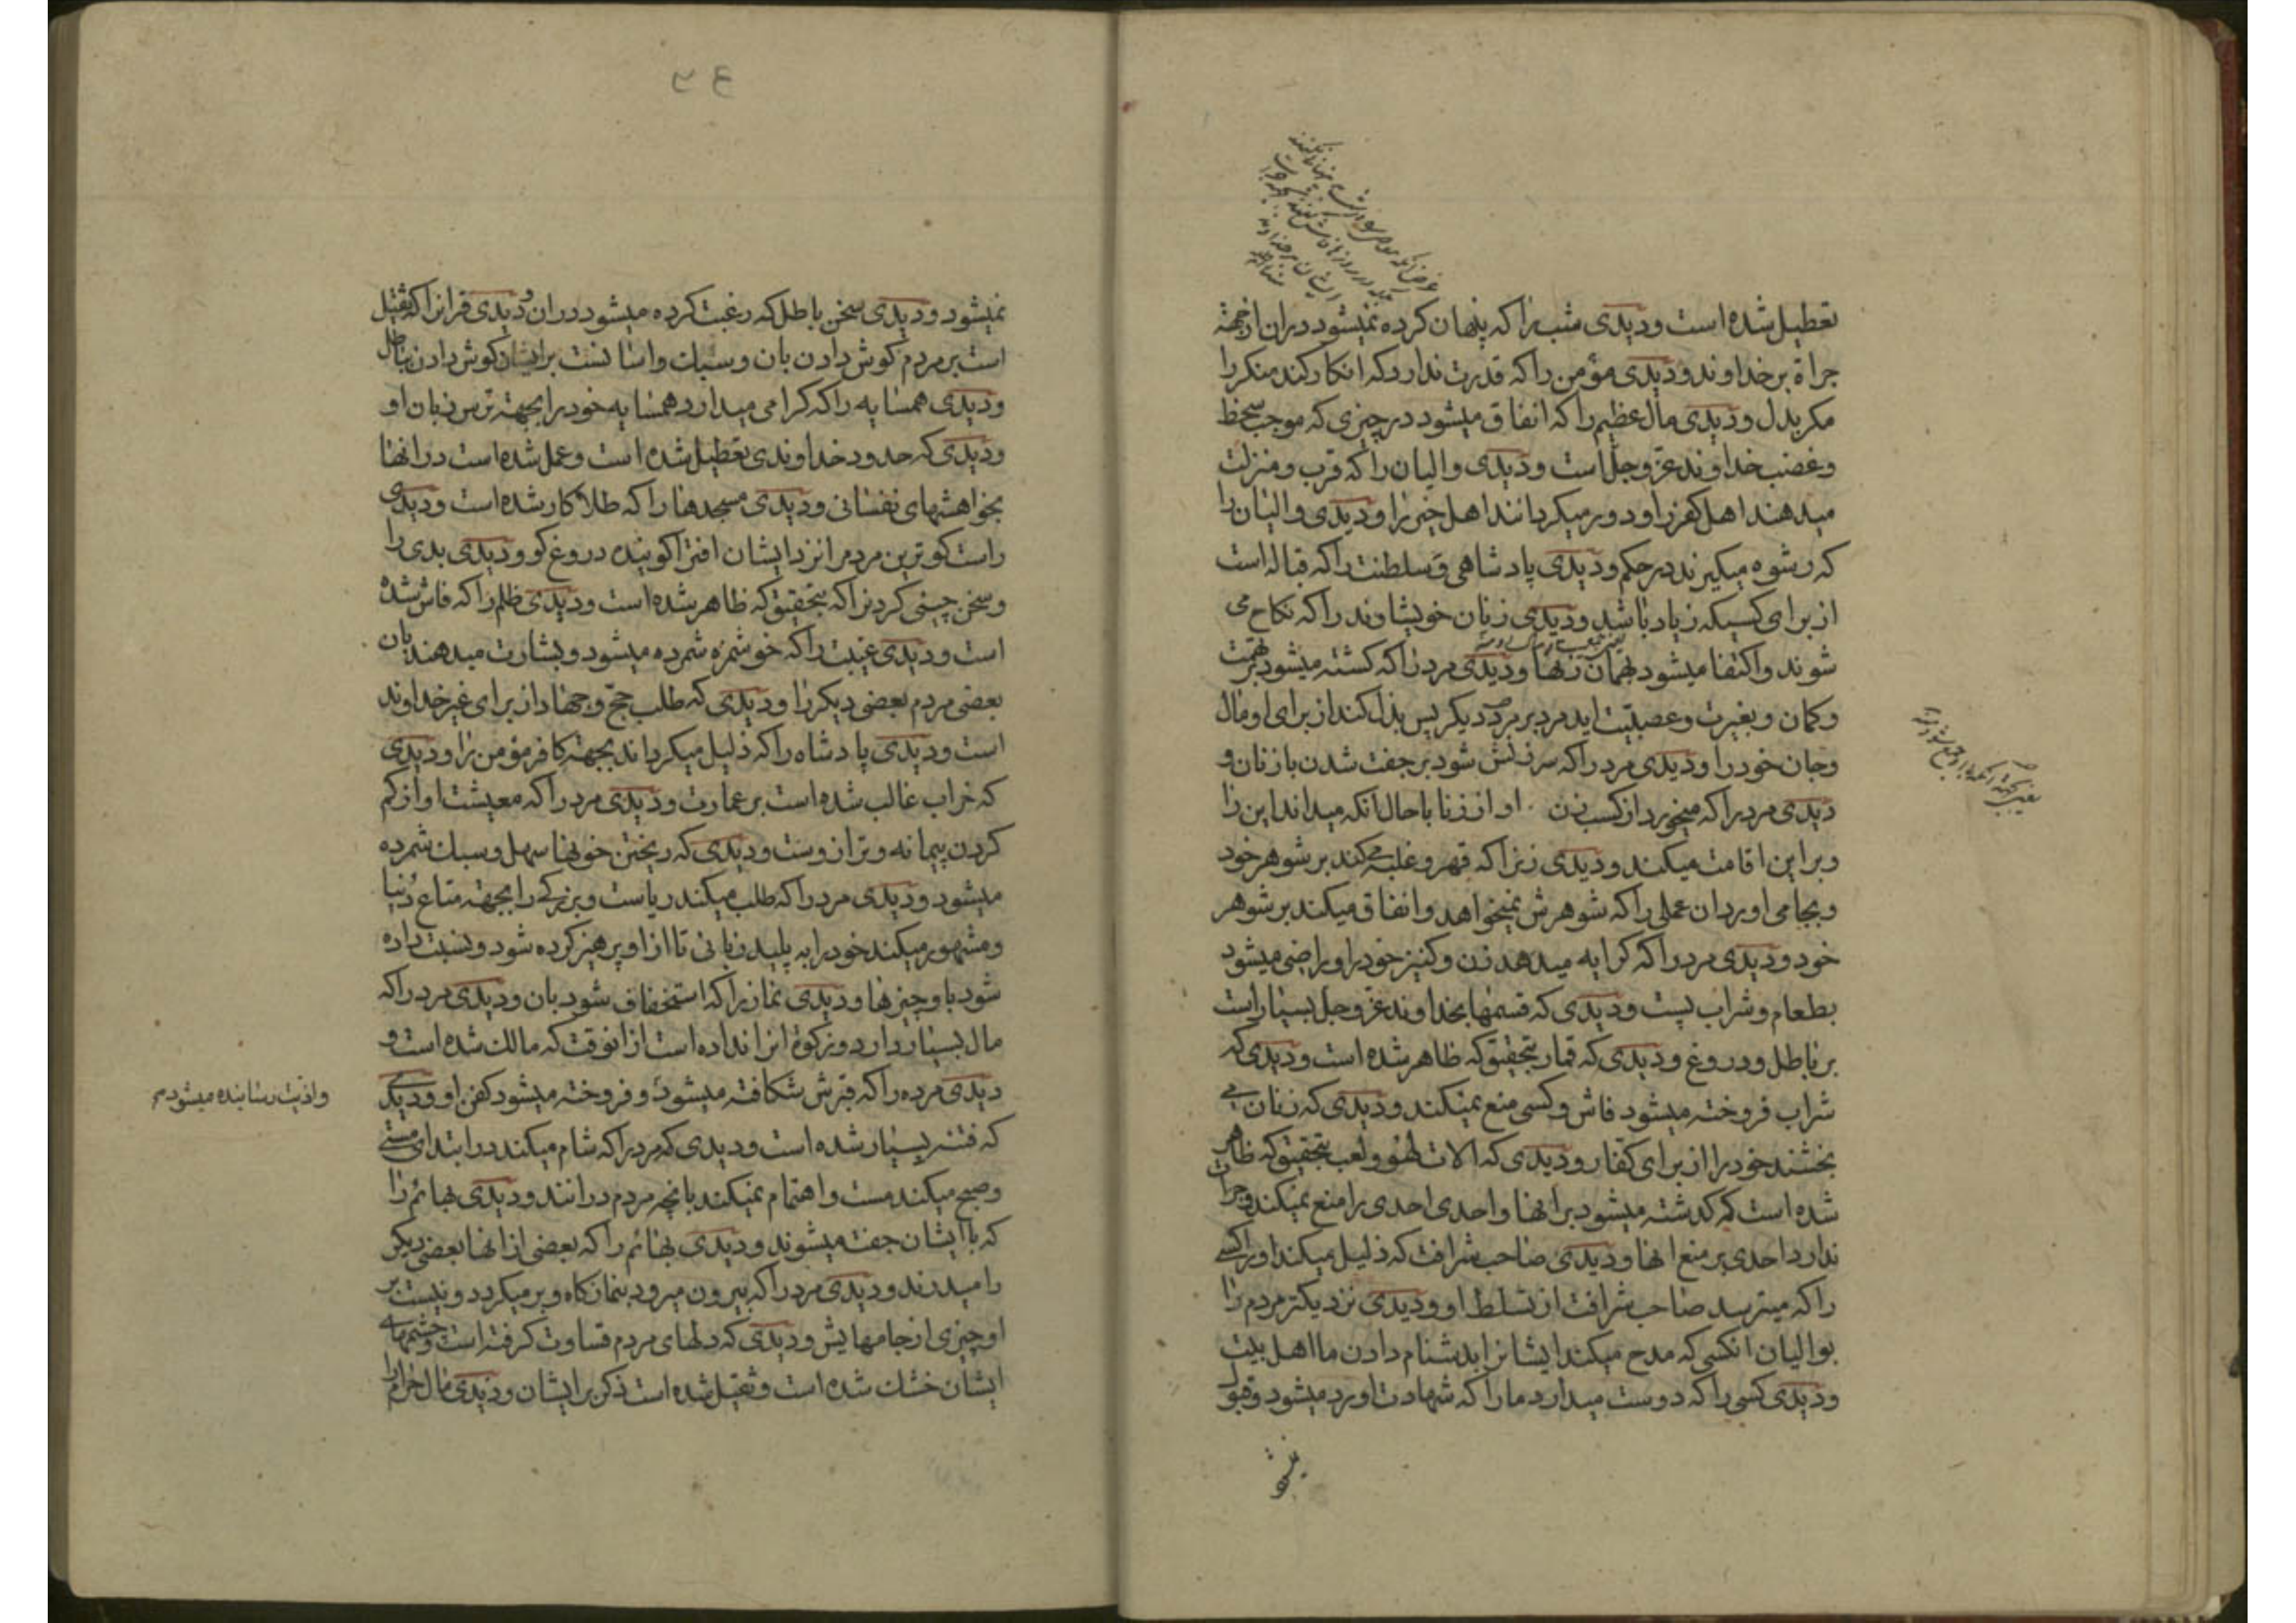 تعطیل شده است و دیدی شب را که پنهان کرده نمیشود دران از جهته
جراة بر خداوند و دیدی مؤمن را که قدرت ندارد که انکار کند منکر را
مکر بدل و دیدی مال عظیم را که انفاق میشود در چیزی که موجب سخط
و غضب خداوند عزّ و جلّ است و دیدی والیان را که قرب و منزلت
میدهند اهل کفر را و دور میکردانند اهل خیر را و دیدی والیان را
که رشوه میکیرند در حکم و دیدی پادشاهی و سلطنت را که قباله است
از برای کسیکه زیاد باشد و دیدی زنان خویشاوند را که نکاح می
شوند و اکتفا میشود بهمان زنها و دیدی مرد را که کشته میشود بر تهمت
و کمان و بغیرت و عصبیّت اید مرد بر مرد دیکر پس بذل کند از برای او مال
و جان خود را و دیدی مرد را که سرزنش شود بر جفت شدن با زنان و
دیدی مرد را که میخورد از کسب زن او از زنا با حال آنکه میداند این را
و بر این اقامت میکند و دیدی زنرا که قهر و غلبه میکند بر شوهر خود
و بجا می اورد ان عملی را که شوهرش نمیخواهد و انفاق میکند بر شوهر
خود و دیدی مرد را که کرایه میدهد زن و کنیز خود را و راضی میشود
بطعام و شراب پست و دیدی که قسمها بخداوند عزّ و جل بسیار است
بر باطل و دروغ و دیدی که قمار بتحقیق که ظاهر شده است و دیدی که
شراب فروخته میشود فاش و کسی منع نمیکند و دیدی که زنان می
بخشند خود را از برای کفّار و دیدی که الات لهو و لعب بتحقیق که ظاهر
شده است که کذشته میشود بر انها و احدی احدی را منع نمیکند و جرات
ندارد احدی بر منع انها و دیدی صاحب شرافت که ذلیل میکند او را کسی
را که میترسد صاحب شرافت از تسلط او و دیدی نزدیکتر مردم را
بوالیان انکسی که مدح میکند ایشانرا بدشنام دادن ما اهل بیت
و دیدی کسی را که دوست میدارد ما را که شهادت او رد میشود و قبول
نمیشود
نمیشود و دیدی سخن باطل که رغبت کرده میشود دران و دیدی قرانرا که ثقیل
است بر مردم کوش دادن بان و سبک و اسانست بر ایشان کوش دادن باطل
و دیدی همسایه را که کرامی میدارد همسایه خود را بجهته ترس زبان او
و دیدی که حدود خداوندی تعطیل شده است و عمل شده است در انها
بخواهشهای نفسانی و دیدی مسجدها را که طلا کار شده است و دیدی
راست کو ترین مردم را نزد ایشان افترا کوینده دروغ کو و دیدی بدی را
و سخن چینی کردنرا که بتحقیق که ظاهر شده است و دیدی ظلم را که فاش شده
است و دیدی غیبت را که خوشمزه شمرده میشود و بشارت میدهند بان
بعضی مردم بعضی دیکر را و دیدی که طلب حجّ و جهاد از برای غیر خداوند
است و دیدی پادشاه را که ذلیل میکرداند بجهته کافر مؤمن را و دیدی
که خراب غالب شده است بر عمارت و دیدی مرد را که معیشت او از کم
کردن پیمانه و ترازوست و دیدی که ریختن خونها سهل و سبک شمرده
میشود و دیدی مرد را که طلب میکند ریاست و بزرکی را بجهته متاع دنیا
و مشهور میکند خود را به پلید زبانی تا از او پرهیز کرده شود و نسبت داده
شود باو چیزها و دیدی نماز را که استخفاف شود بان و دیدی مرد را که
مال بسیار دارد و زکوة انرا نداده است از انوقت که مالک شده است و
دیدی مرده را که قبرش شکافته میشود و فروخته میشود کفن او و دیدی
واذیت رسانیده میشود
که فتنه بسیار شده است و دیدی که مرد را که شام میکند در ابتدای مستی
و صبح میکند مست و اهتمام نمیکند بانچه مردم درانند و دیدی بهائم را
که با ایشان جفت میشوند و دیدی بهائم را که بعضی از انها بعضی دیکر
را میدرند و دیدی مرد را که بیرون میرود بنمازکاه و برمیکردد و نیست بر
او چیزی از جامهایش و دیدی که دلهای مردم قساوت کرفته است و چشمهای
ایشان خشک شده است و ثقیل شده است ذکر بر ایشان و دیدی مال حرام را